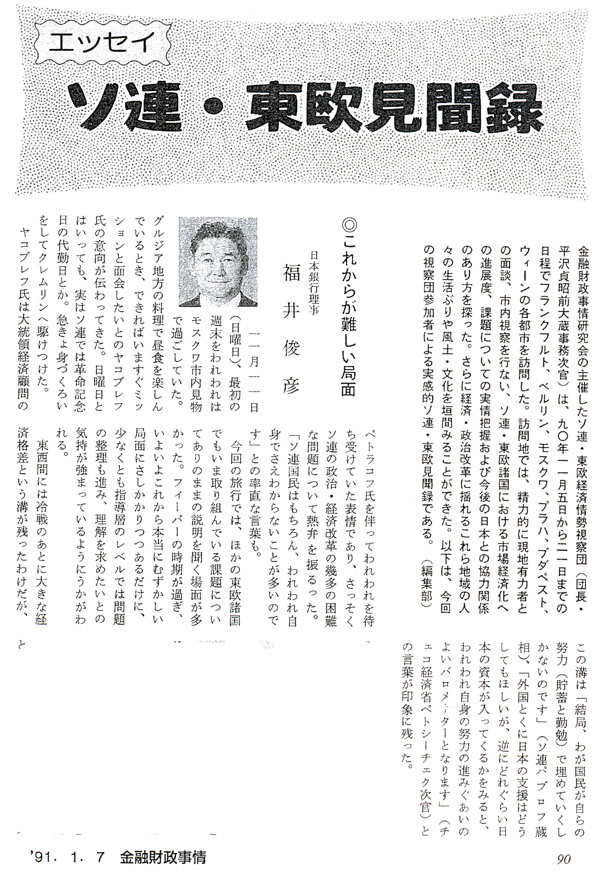 エッセイ
ソ連・東欧見聞録
金融財政事情研究会の主催したソ連・東欧経済情勢視察団(団長・
平沢貞昭前大蔵事務次官)は、九〇年一一月五日から二一日までの
日程でフランクフルト、ベルリン、モスクワ、プラハ、ブダペスト、
ウィーンの各都市を訪問した。訪問地では、精力的に現地有力者と
の面談、市内視察を行ない、ソ連・東欧諸国における市場経済化へ
の進展度、課題についての実情把握および今後の日本との協力関係
のあり方を探った。さらに経済・政治改革に揺れるこれら地域の人
々の生活ぶりや風土・文化を垣間みることができた。以下は、今回
の視察団参加者による実感的ソ連・東欧見聞録である。(編集部)
◎これからが難しい局面
日本銀行理事
福井俊彦
一一月一一日
(日曜日)、最初の
週末をわれわれは
モスクワ市内見物
で過ごしていた。
グルジア地方の料理で昼食を楽しん
でいるとき、できればいますぐミッ
ションと面会したいとのヤコブレフ
氏の意向が伝わってきた。日曜日と
はいっても、実はソ連では革命記念
日の代勤日とか。急きょ身づくろい
をしてクレムリンへ駆けつけた。
ヤコブレフ氏は大統領経済顧問の
ペトラコフ氏を伴ってわれわれを待
ち受けていた表情であり、さっそく
ソ連の政治・経済改革の幾多の困難
な問題について熱弁を振るった。
「ソ連国民はもちろん、われわれ自
身でさえわからないことが多いので
す」との率直な言葉も。
今回の旅行では、ほかの東欧諸国
でもいま取り組んでいる課題につい
てありのままの説明を聞く場面が多
かった。フィーバーの時期が過ぎ、
いよいよこれから本当にむずかしい
局面にさしかかりつつあるだけに、
少なくとも指導層のレベルでは問題
の整理も進み、理解を求めたいとの
気持が強まっているようにうかがわ
れる。
東西間には冷戦のあとに大きな経
済格差という溝が残ったわけだが、
と
この溝は「結局、わが国民が自らの
努力(貯蓄と勤勉)で埋めていくし
かないのです」(ソ連パブロフ蔵
相)、「外国とくに日本の支援はどう
してもほしいが、逆にどれぐらい日
本の資本が入ってくるかをみると、
われわれ自身の努力の進みぐあいの
よいバロメーターとなります」(チ
ェコ経済省ペトシーチェク次官)と
の言葉が印象に残った。
'91. 1. 7 金融財政事情
90